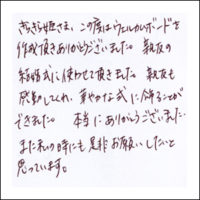 きらきら姫さま、この度はウェルカムボードを
作成頂きありがとうございました。親友の
結婚式に使わせて頂きました。親友も
感動してくれ、華やかな式に飾ることが
できました。 本当にありがとうございました。
また私の時にも是非お願いしたいと
思っています。